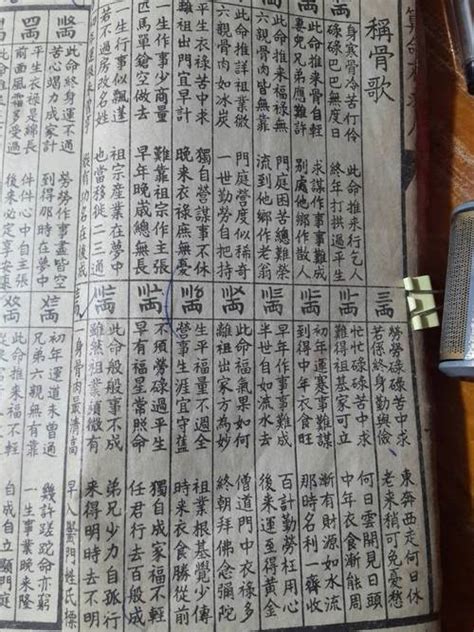 稱骨歌
身寒骨冷苦伶仃 此命推來行乞人
碌碌巴巴無度日 終年打拱過平生
此命推來骨自輕 求謀作事事難成
妻兒兄弟應難許 別處他鄉作散人
此命推來福祿無 門庭困苦總難榮
六親骨肉皆無靠 流到他鄉作老翁
此命推詳祖業微 門庭營度似稀奇
六親骨肉如冰炭 一世勤勞自把持
平生衣祿苦中求 獨自營謀事不休
離祖出門宜早計 晚來衣祿庶無憂
一生作事少商量 難靠祖宗作主張
匹馬單鎗空做去 早年晚歲總無長
一生行事似飄蓬 祖宗產業在夢中
若不過房改名姓 也當移徙二三通
縱有功名在後成
此命終身運不通 勞勞作事盡皆空
苦心竭力成家計 到得那時在夢中
平生衣祿是綿長 件件心中自主張
前面風霜多受過 後來必定享安
勞勞碌碌苦中求 東奔西走何日休
若係終身勤與儉 老來稍可免憂愁
忙忙碌碌苦中求 何日雲開見日頭
難得祖基家可立 中年衣食漸能周
初年運蹇事難謀 漸有財源如水流
到得中年衣食旺 那時名利一齊收
早年作事事難成 百計勤勞枉用心
半世自如流水去 後來運至得黃金
此命福氣果如何 僧道門中衣祿多
離祖出家方為妙 終朝拜佛念彌陀
生平福量不週全 祖業根基覺少傳
營事生涯宜守舊 時來衣食勝從前
不須勞碌過平生 獨自成家福不輕
早有福星常照命 任君行去百般成
此命般般事不成 弟兄少力自孤行
雖然祖業須微有 來得明時去不明
一身骨肉最清高 早入黌門姓氏標
初年運道未曾通 幾許蹉跎命亦窮
兄弟六親無有靠 一生事業晚來隆
此命推來福不輕 自成自立顯門庭